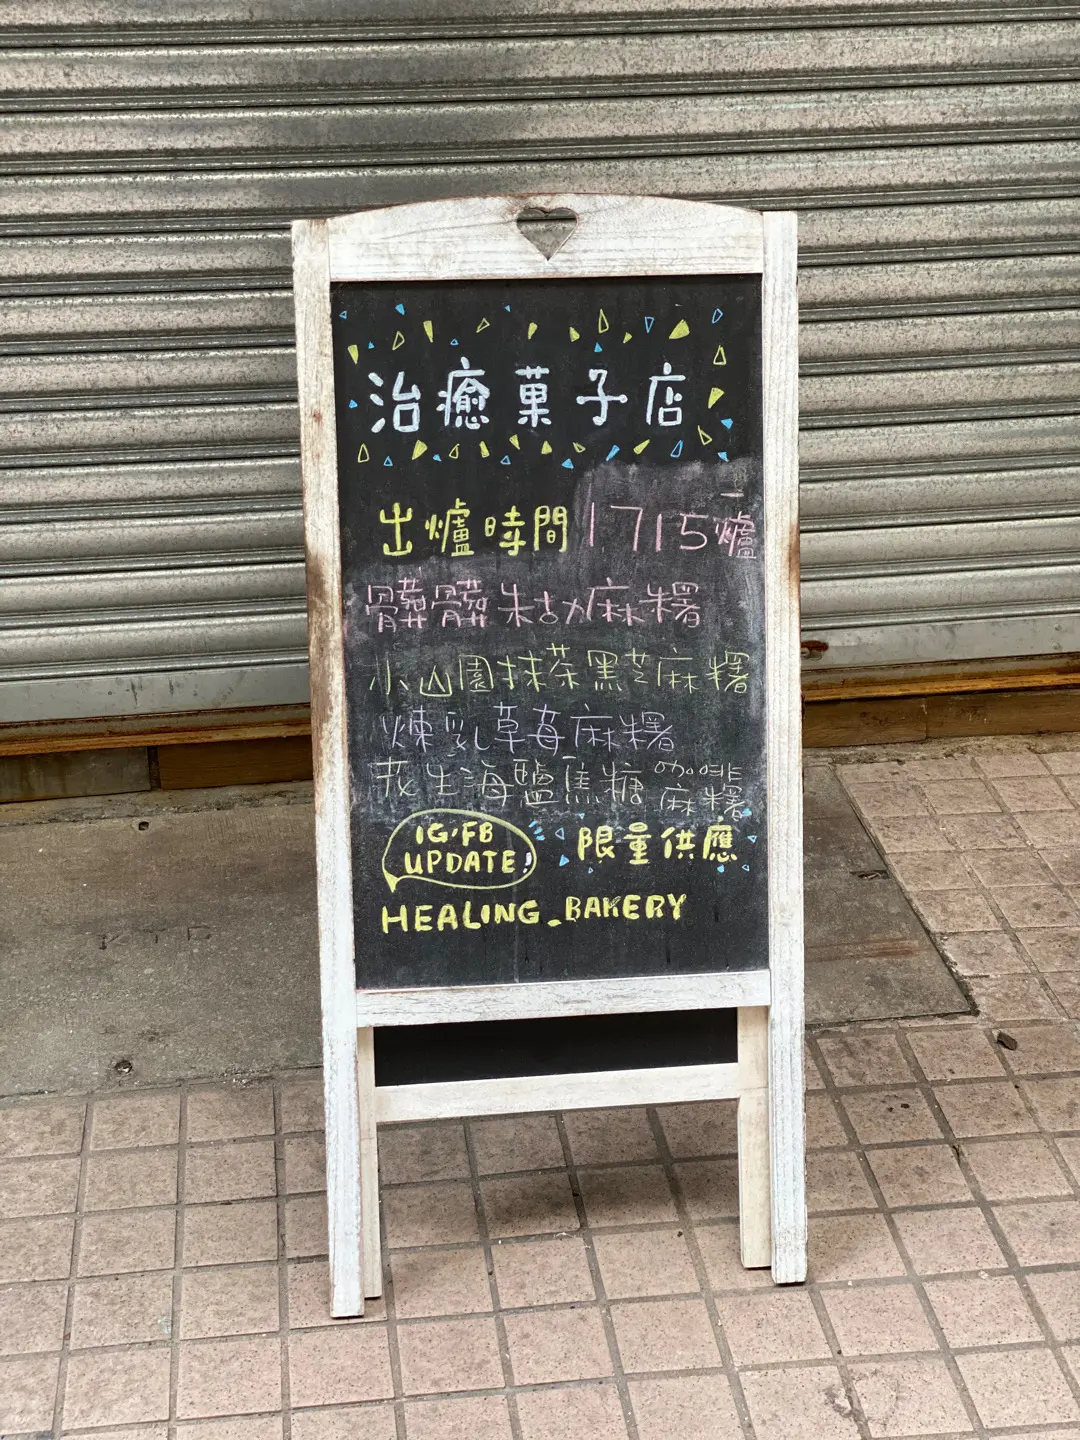 治癒菓子店
出爐時間 1715 一爐
髒髒朱古力麻糬
小山園抹茶黑芝麻糬
煉乳草莓麻糬
莪生海鹽焦糖咖啡麻糬
IG/FB
UPDATE!
限量供應
HEALING_BAKERY